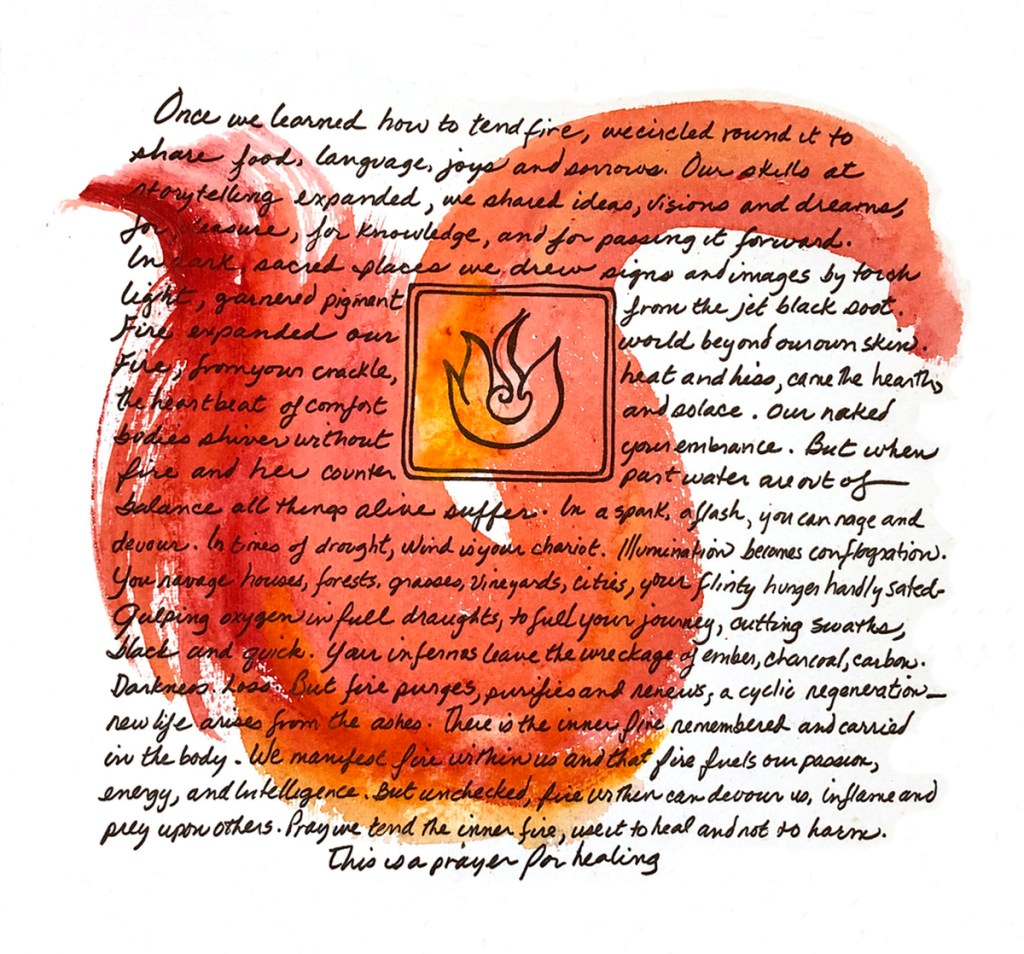 Once we learned how to tend fire, we circled round it to
share food, language, joys and sorrows. Our skills at
storytelling expanded, we shared ideas, visions and dreams,
for pleasure, for knowledge, and for passing it forward.
In dark sacred places we drew signs and images by torch
light, garnered pigment from the jet black soot.
Fire expanded our world beyond our own skin.
Fire, from your crackle, heat and hiss, came the hearth,
the heartbeat of comfort and solace. Our naked
bodies shiver without your embrance. But when
fire and her counter part water are out of
balance all things alive suffer. In a spark, a flash, you can rage and
devour. In times of drought, wind is your chariot. Illumination becomes conflagration.
You ravage houses, forests, grasses, vineyards, cities, your flinty hunger hardly sated-
Gulping oxygen in full draughts, to fuel your journey, cutting swaths,
black and quick. Your infernos leave the wreckage of ember, charcoal, carbon.
Darkness. Loss. But fire purges, purifies and renews, a cyclic regeneration—
new life arises from the ashes. There is the inner fire remembered and carried
in the body. We manifest fire within us and that fire fuels our passion,
energy, and Intelligence. But unchecked, fire within can devour us, inflame and
prey upon others. Pray we tend the inner fire, use it to heal and not to harm.
This is a prayer for healing